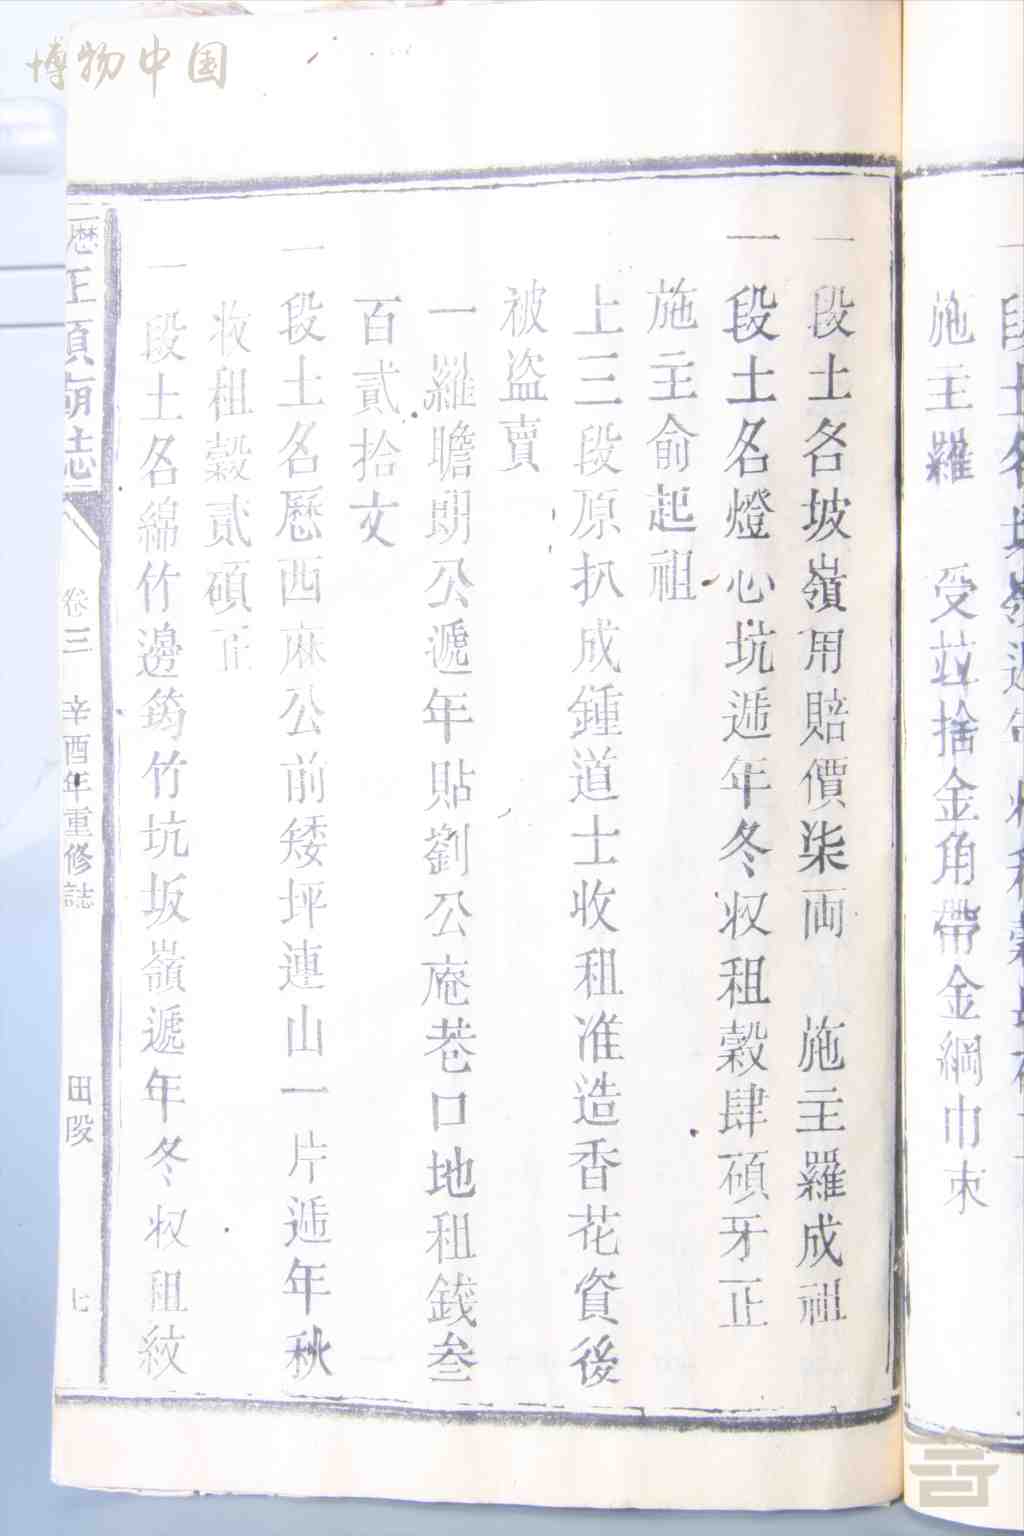 施主羅 受茲捨金角帶金綱巾束
一段土名坡嶺用賠價柒両 施主羅成祖
一段土名燈心坑遞年冬収租穀肆碩牙正
施主俞起祖
上三段原扒成鍾道士收租准造香花資後
被盜賣
一羅瞻明公遞年貼劉公庵巷口地租錢叁
百貳拾文
一段土名歷西麻公前矮坪連山一片遞年秋
收租穀貳碩正
一段土名綿竹邊筠竹坑坂嶺遞年冬収租紋
歷正順廟誌 卷三 辛酉年重修誌 田段 七
博物中国